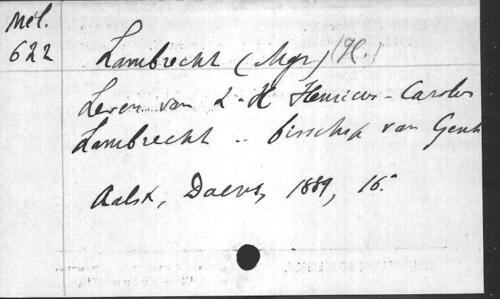 Mél.
622
Lambrecht (Mgr) (H.)
Leven van Z. H Henricus-Carolus
Lambrecht .. bisschop van Gent
Aalst, Daens, 1889, 16°